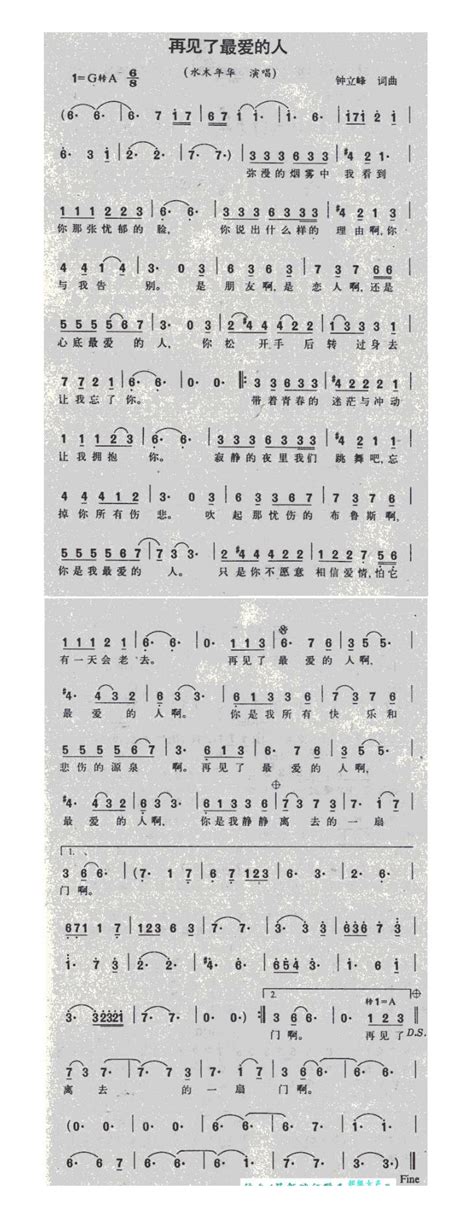 再见了最爱的人
1=G转A 6/8
(水木年华 演唱)
钟立峰 词曲
(6· 6· | 6· 7 1 7 | 6 7 1 1· | 1· 6· | 1 7 1 2 1
6· 3 1 | 2· 2· | 7· 7·) | 3 3 3 6 3 3 | #4 2 1·
弥漫的烟雾中 我看到
1 1 1 2 2 3 | 6· 6· | 3 3 3 6 3 3 3 | #4 2 1 1
你那张忧郁的脸, 你说出什么样的 理由啊,你
4 4 1 4 | 3· 0 3 | 6 3 6 3 | 7 3 7 6 6
与我告别。 是 朋友啊,是 恋人啊,还是
5 5 5 5 6 7 | 3· 0 3 | 2 #4 4 2 2 | 1 3 3 3 1
心底最爱的人, 你松开手后转过身去
7 7 2 1 | 6· 6· | 0· 0· ‖: 3 3 3 6 3 3 | #4 2 2 2 2
让我忘了你。 带着青春的 迷茫与冲动
1 1 1 2 3 | 6· 6· | 3 3 3 6 3 3 3 | #4 2 1 1
让我拥抱你。 寂静的夜里我们 跳舞吧,忘
4 4 4 1 2 | 3· 0 3 | 6 3 6 3 | 7 3 7 6
掉你所有伤悲。 吹起那忧伤的 布鲁斯啊,
5 5 5 5 6 7 | 7 3 3· | 2 #4 4 2 2 | 1 2 2 7 5 6
你是我最爱的人。 只是你不愿意 相信爱情,怕它
1 1 1 2 1 | 6· 6· | 0· 1 1 3 | 6· 7 6 | 3 5 5·
有一天会老去。 再见了 最爱的人啊,
#4· 4 3 2 | 6· 6· | 6 1 3 3 6 | 7 3 7 6
最爱的人啊。 你是我所有快乐和
5 5 5 5 6 7 | 3· 6 1 3 | 6· 7 6 | 3 5 5·
悲伤的源泉啊。 再见了 最爱的人啊,
#4· 4 3 2 | 6 3 3· | 6 1 3 3 6 | 7 3 7 3 | 7· 1 7
最爱的人啊, 你是我静静离去的一扇
1.
3 6 6· | (7· 1 7 | 6 7 1 2 3 | 6· 3· | 2· 6·
门啊。
6 7 1 1 7 | 1 2 3 6 3 | 7· 7· | 3· 1 3 | 6 3 6 7 3
1· 7 3 | 2· 2· | #4· 6· | 6 5 4 3 | 1· 1·
2. 转1=A
3· 3 2 3 2 1 | 7· 7· | 0· 0·) :‖ 3 6 6· | 0· 1 2 3 ‖
门啊。 再见了 D.S.
7 3 7· | 7· 7 3 | 7· 7· | 3· 6· | 6· 6·
离去的一扇门啊。
0· 0· | 6· 7· | 1· 1· | 1· 1· | 1· 7·
6· 6 7 | 6· 6· | 6· 6· | 6· 6· | 0· 0· ‖
Fine